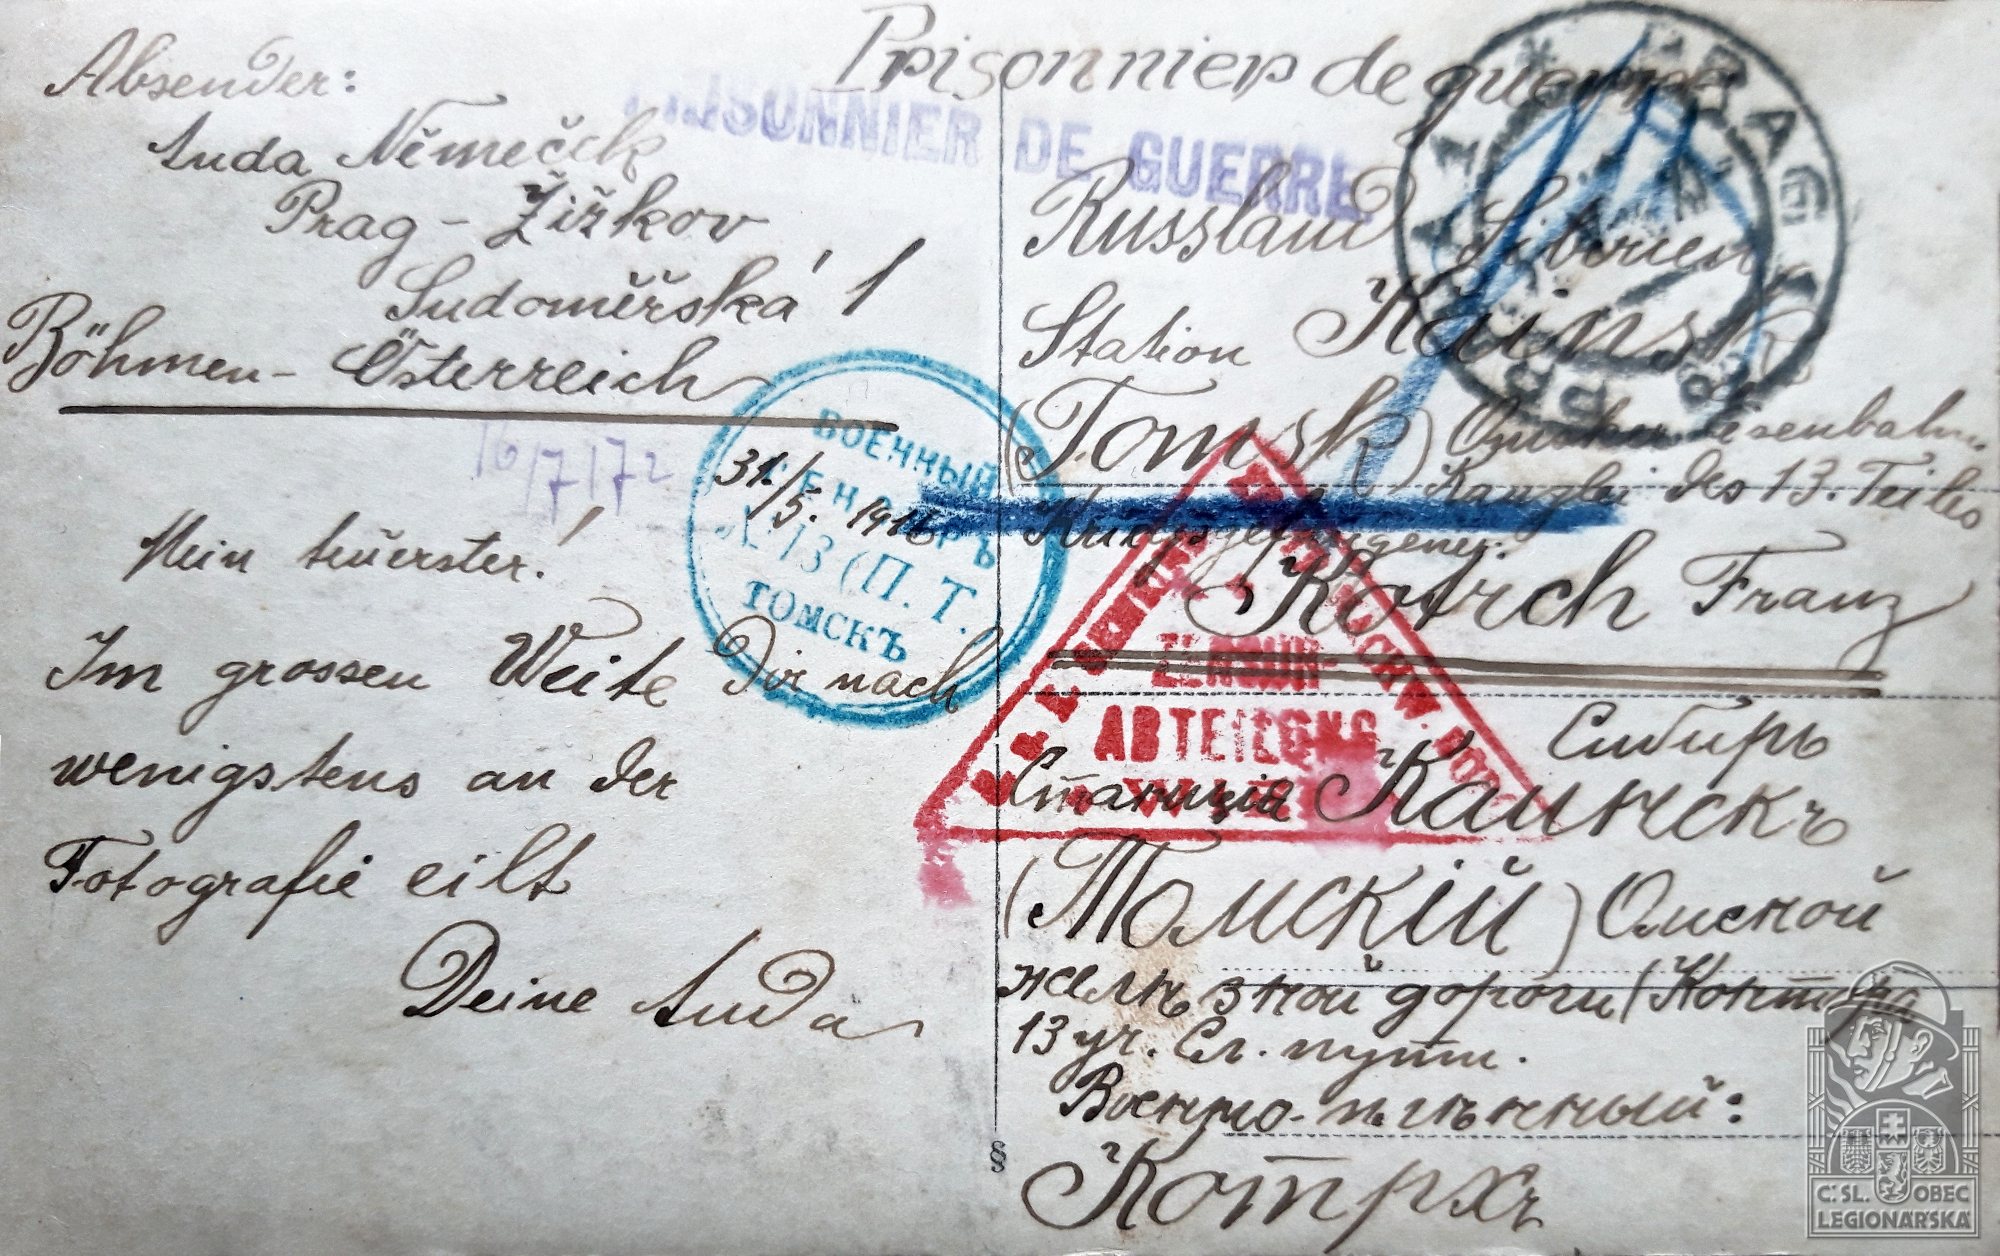 Prisonnier de guerre
PRISONNIER DE GUERRE.
Absender:
Luda Němeček
Prag - Žižkov
Sudoměřská 1
Böhmen - Österreich
16/7/72
31./5. 1916
Mein teuerster!
Im grossen Weite Dir nach
wenigstens an der
Fotografie eilt
Deine Luda
ВОЕННЫЙ
ЦЕНЗОРЪ
№13 (П. Т.)
ТОМСКЪ
PRAG
Russland Sibirien
Station Kainsk
(Tomsk) Omsker Eisenbahn.
Kanzlei des 13. Teiles
Kriegsgefangener:
Kotrch Franz
ZENSUR-
ABTEILUNG
Сибирь
Станція Каинскъ
(Томскій) Омской
желѣзной дороги (Контора
13 уч. Сл. пути.
Военно-плѣнный:
Котрхъ
§
Č. SL. OBEC
LEGIONÁŘSKÁ